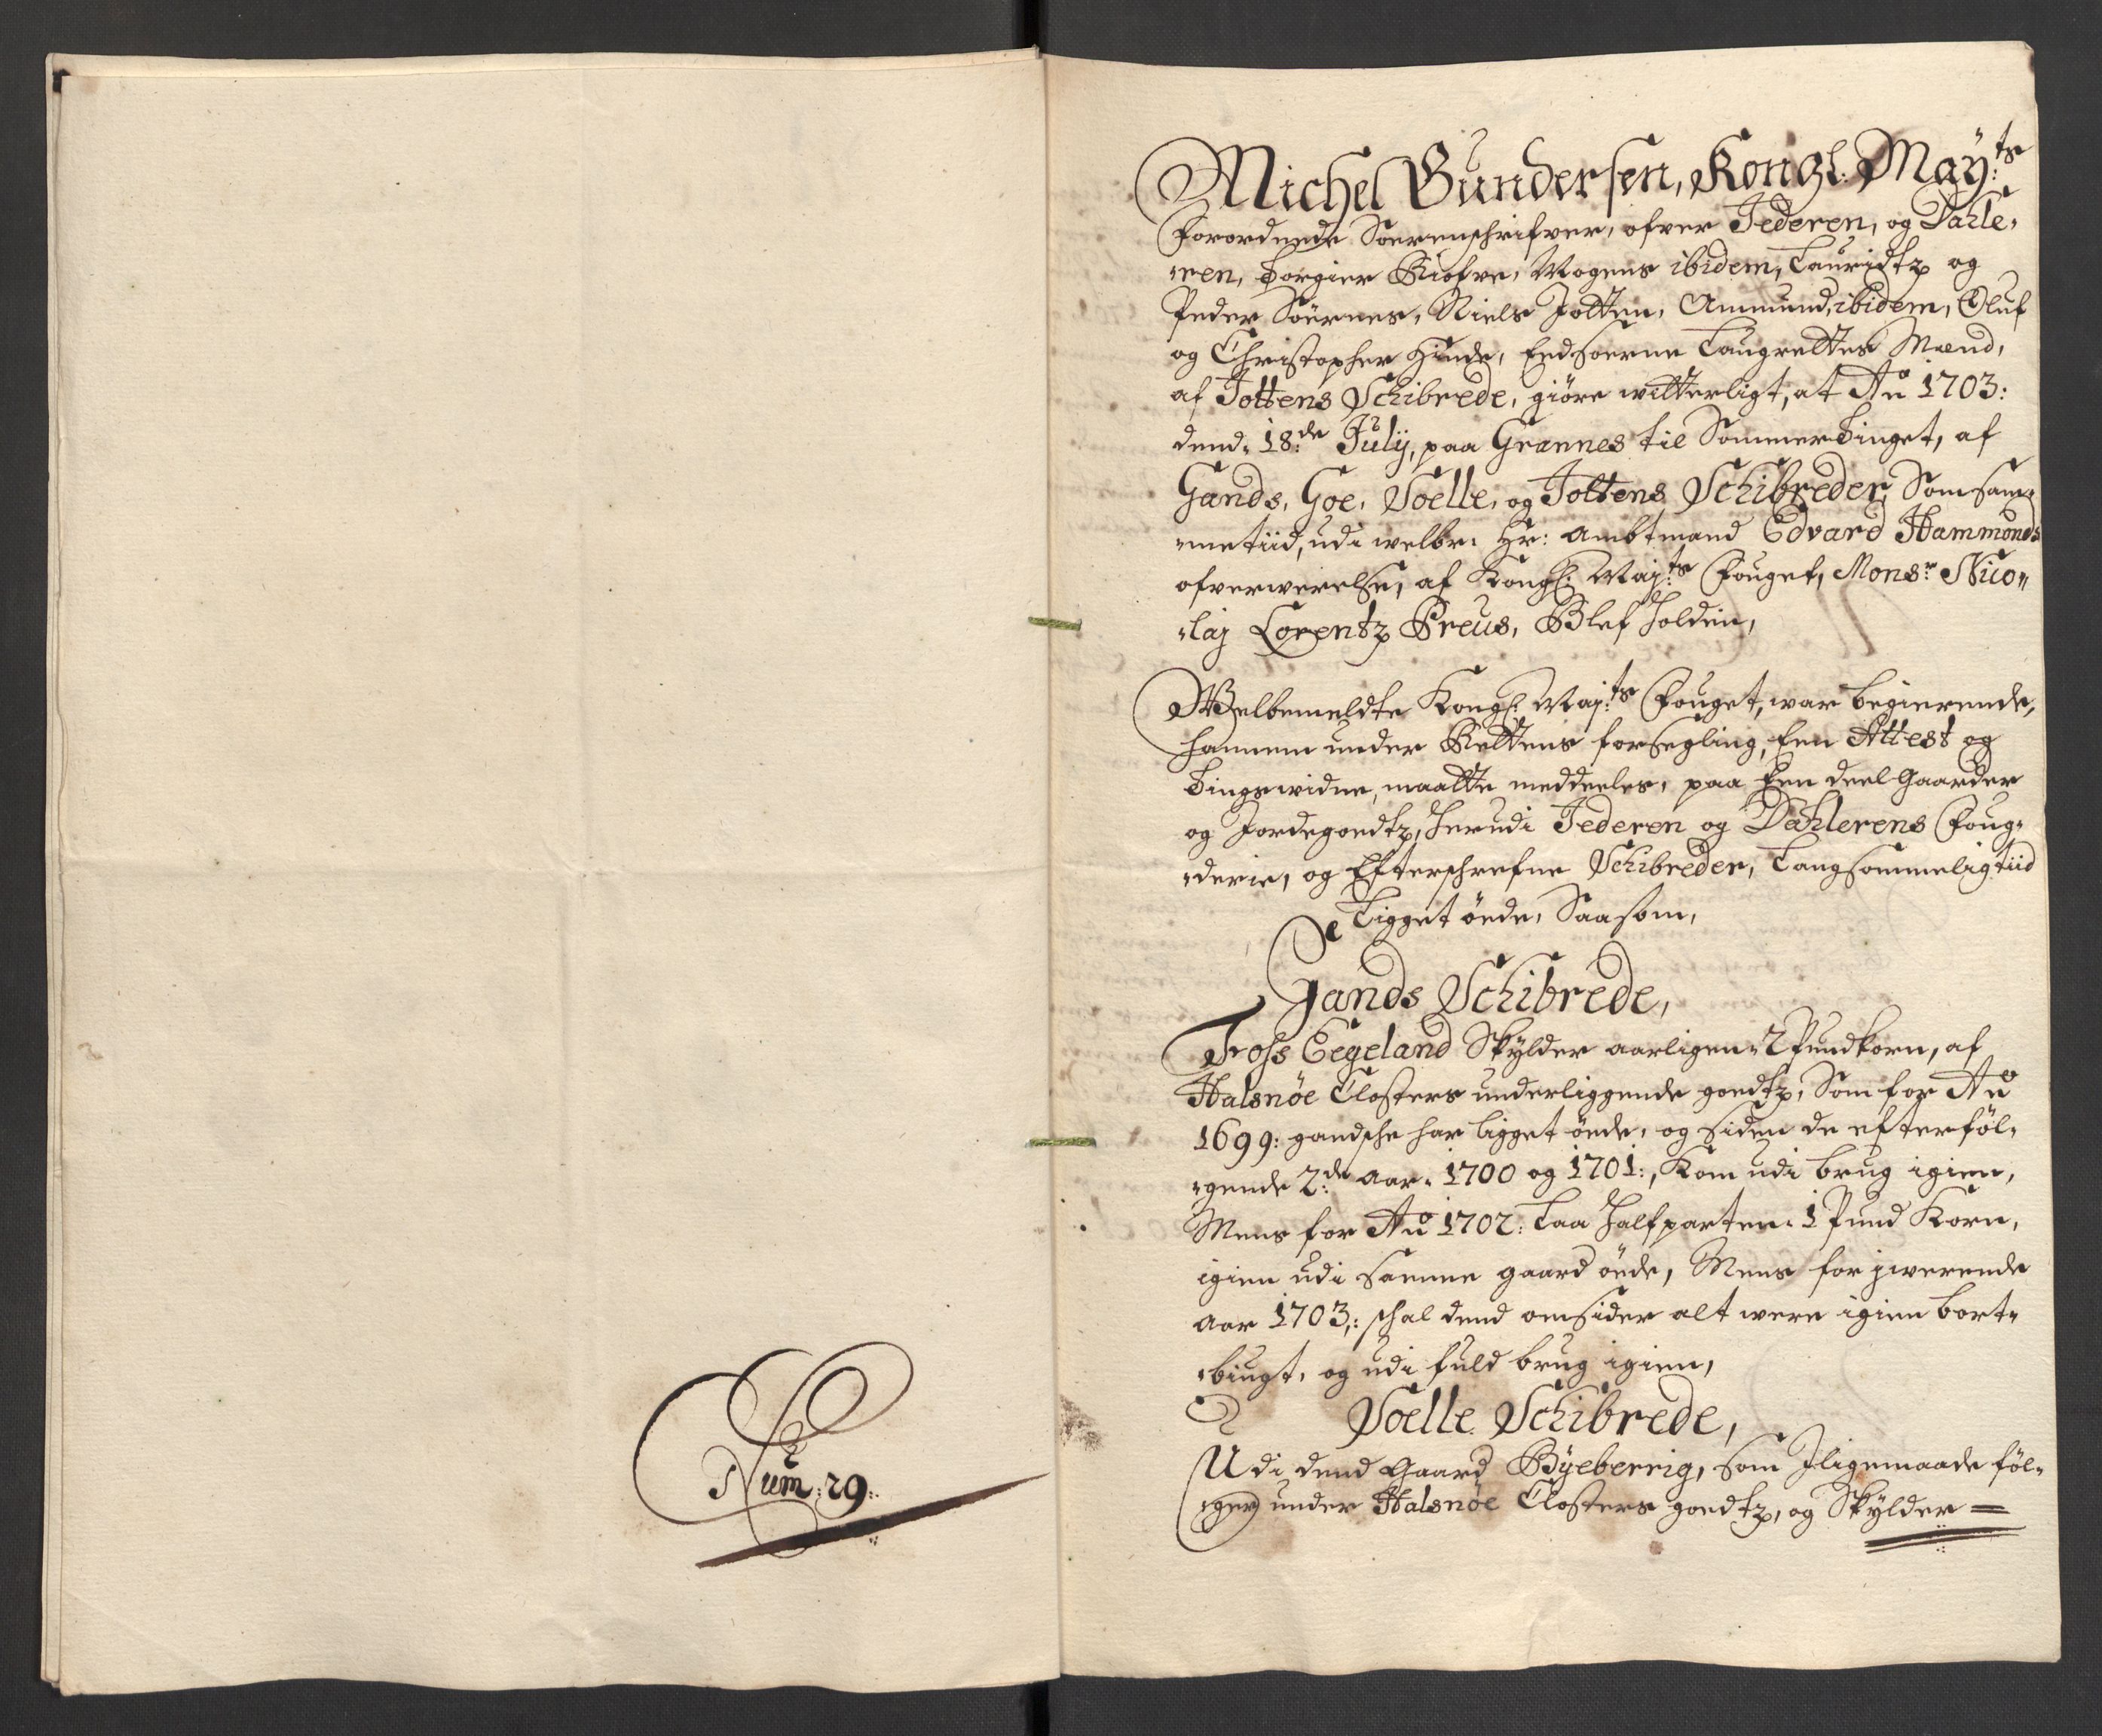 Num: 29.
Michel Gundersen, Kongl: Maÿ:ts
Forordnede Sorenschrifver, ofver Jederen, og Dahle,
"ren, Torgier Kiofve, Mogens ibidem, Lauridtz og
Peder Söernes, Niels Joltten, Ammund, ibidem, Oluf
og Christopher Hinde, Eedsorne Laugrettes Mænd,
af Joltens Schibrede, giöre witterligt, at Año 1703:
dend. 18:de Julÿ, paa Grannes til Sommertinget, af
Gands, Goe, Soelle, og Joltens Schibreder, Som sam"
"metiid, udi welbr: Hr: Ambtmand Edvard Hammonds
ofverwerelse, af Kongl: Maÿ:ts Fouget, Monsr Nico"
"laj Lorentz Preus, Blef holden,
Welbemeldte Kongl: Maÿ:ts Fouget, war begierende,
hannem under Rettens forsegling, Een Attest og
Tingswidne, maatte meddeeles, paa Een deel Gaarder
og Jordegoedtz, herudi Jederen og Dahlerens Foug"
"derie, og Efterschrefne Schibreder, Langsommelig tiid
Ligget öede, Saasom,
Gands Schibrede,
Fross Eegeland Skÿlder aarligen. 2 Pundkorn, af
Halsnöe Closters underliggende goedtz, Som for Año
1699: gandsche har ligget öede, og siden de efterföl,
"gende 2:de aar. 1700 og 1701:, Kom udi brug igien,
Mens for Año 1702: Laa Halfparten. 1 Pund Korn,
igien udi samme gaard öede, Mens for jwerende
Aar 1703,: schal dend omsider alt were igien bort"
"bÿugt, og udi fuld brug igien,
Soelle Schibrede,
Udi dend Gaard Bÿeberrig, som Jligemaade föl"
"ger under Halsnöe Closters goedtz, og Skÿlder =